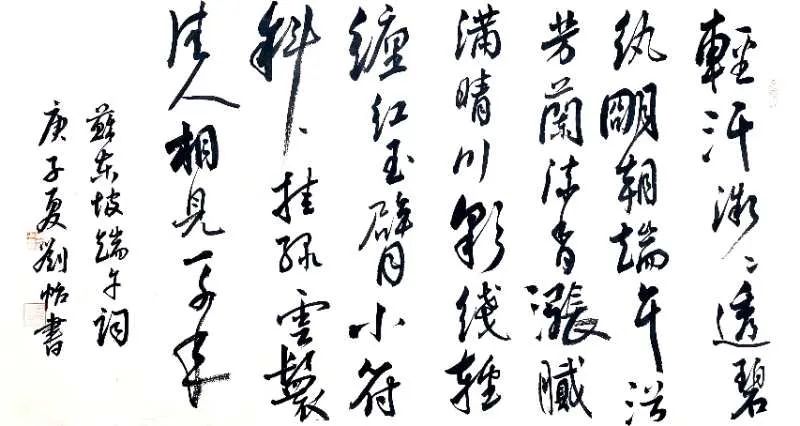 輕汗微〻透碧
紈朙朝端午浴
芳蘭流香漲膩
滿晴川彩线輕
纏红玉臂小符
斜〻挂绿雲鬟
佳人相見一千年
蘇東坡端午詞
庚子夏劉書